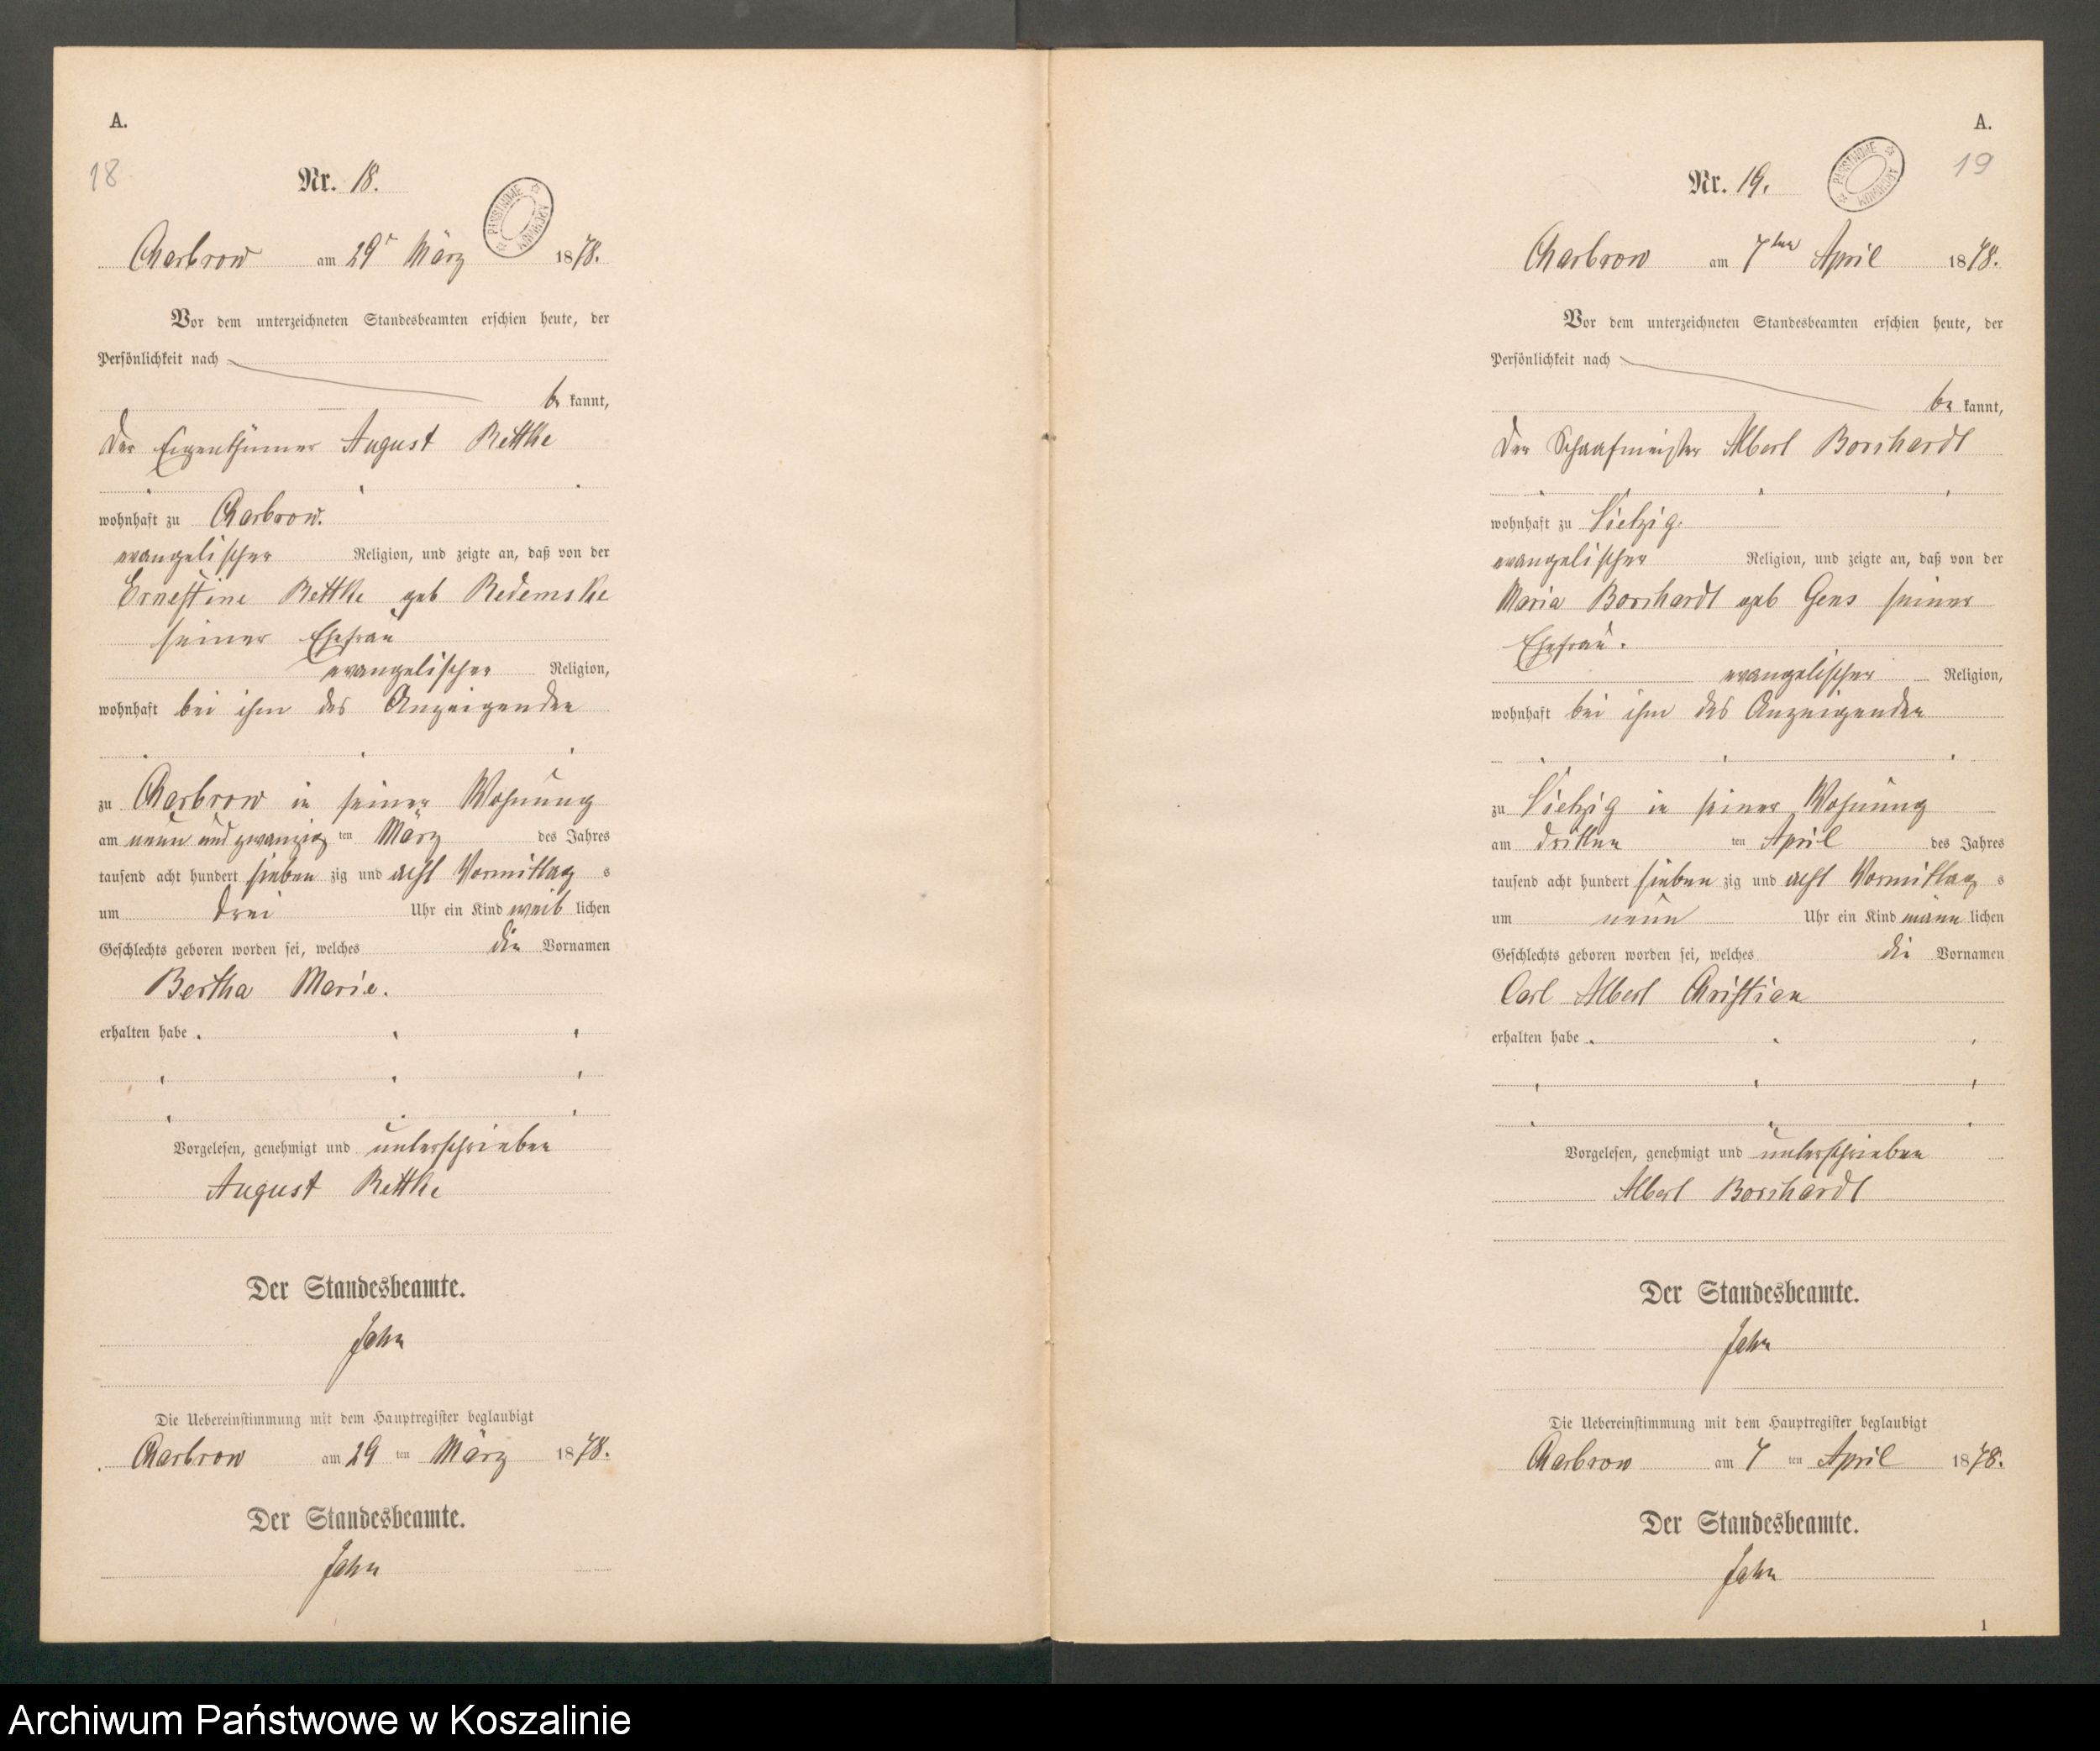 A.
18
Nr. 18.
PAŃSTWOWE ARCHIWUM
Charbrow am 29t März 1878.
Vor dem unterzeichneten Standesbeamten erschien heute, der
Persönlichkeit nach
be kannt,
der Eigenthümer August Rettke
wohnhaft zu Charbrow.
evangelischer Religion, und zeigte an, daß von der
Ernestine Rettke geb Redemske
seiner Ehefrau
evangelischer Religion,
wohnhaft bei ihm des Anzeigenden
zu Charbrow in seiner Wohnung
am neun und zwanzig ten März des Jahres
tausend acht hundert sieben zig und acht Vormittag s
um drei Uhr ein Kind weib lichen
Geschlechts geboren worden sei, welches die Vornamen
Bertha Marie.
erhalten habe.
Vorgelesen, genehmigt und unterschrieben
August Rettke
Der Standesbeamte.
Jahn
Die Uebereinstimmung mit dem Hauptregister beglaubigt
Charbrow am 29 ten März 1878.
Der Standesbeamte.
Jahn
A.
19
Nr. 19.
PAŃSTWOWE ARCHIWUM
Charbrow am 7ten April 1878.
Vor dem unterzeichneten Standesbeamten erschien heute, der
Persönlichkeit nach
be kannt,
der Schaafmeister Albert Borchardt
wohnhaft zu Vietzig.
evangelischer Religion, und zeigte an, daß von der
Maria Borchardt geb Gens seiner
Ehefrau.
evangelischer Religion,
wohnhaft bei ihm des Anzeigenden
zu Vietzig in seiner Wohnung
am dritten ten April des Jahres
tausend acht hundert sieben zig und acht Vormittag s
um neun Uhr ein Kind männ lichen
Geschlechts geboren worden sei, welches die Vornamen
Carl Albert Christian
erhalten habe.
Vorgelesen, genehmigt und unterschrieben
Albert Borchardt
Der Standesbeamte.
Jahn
Die Uebereinstimmung mit dem Hauptregister beglaubigt
Charbrow am 7 ten April 1878.
Der Standesbeamte.
Jahn
1
Archiwum Państwowe w Koszalinie